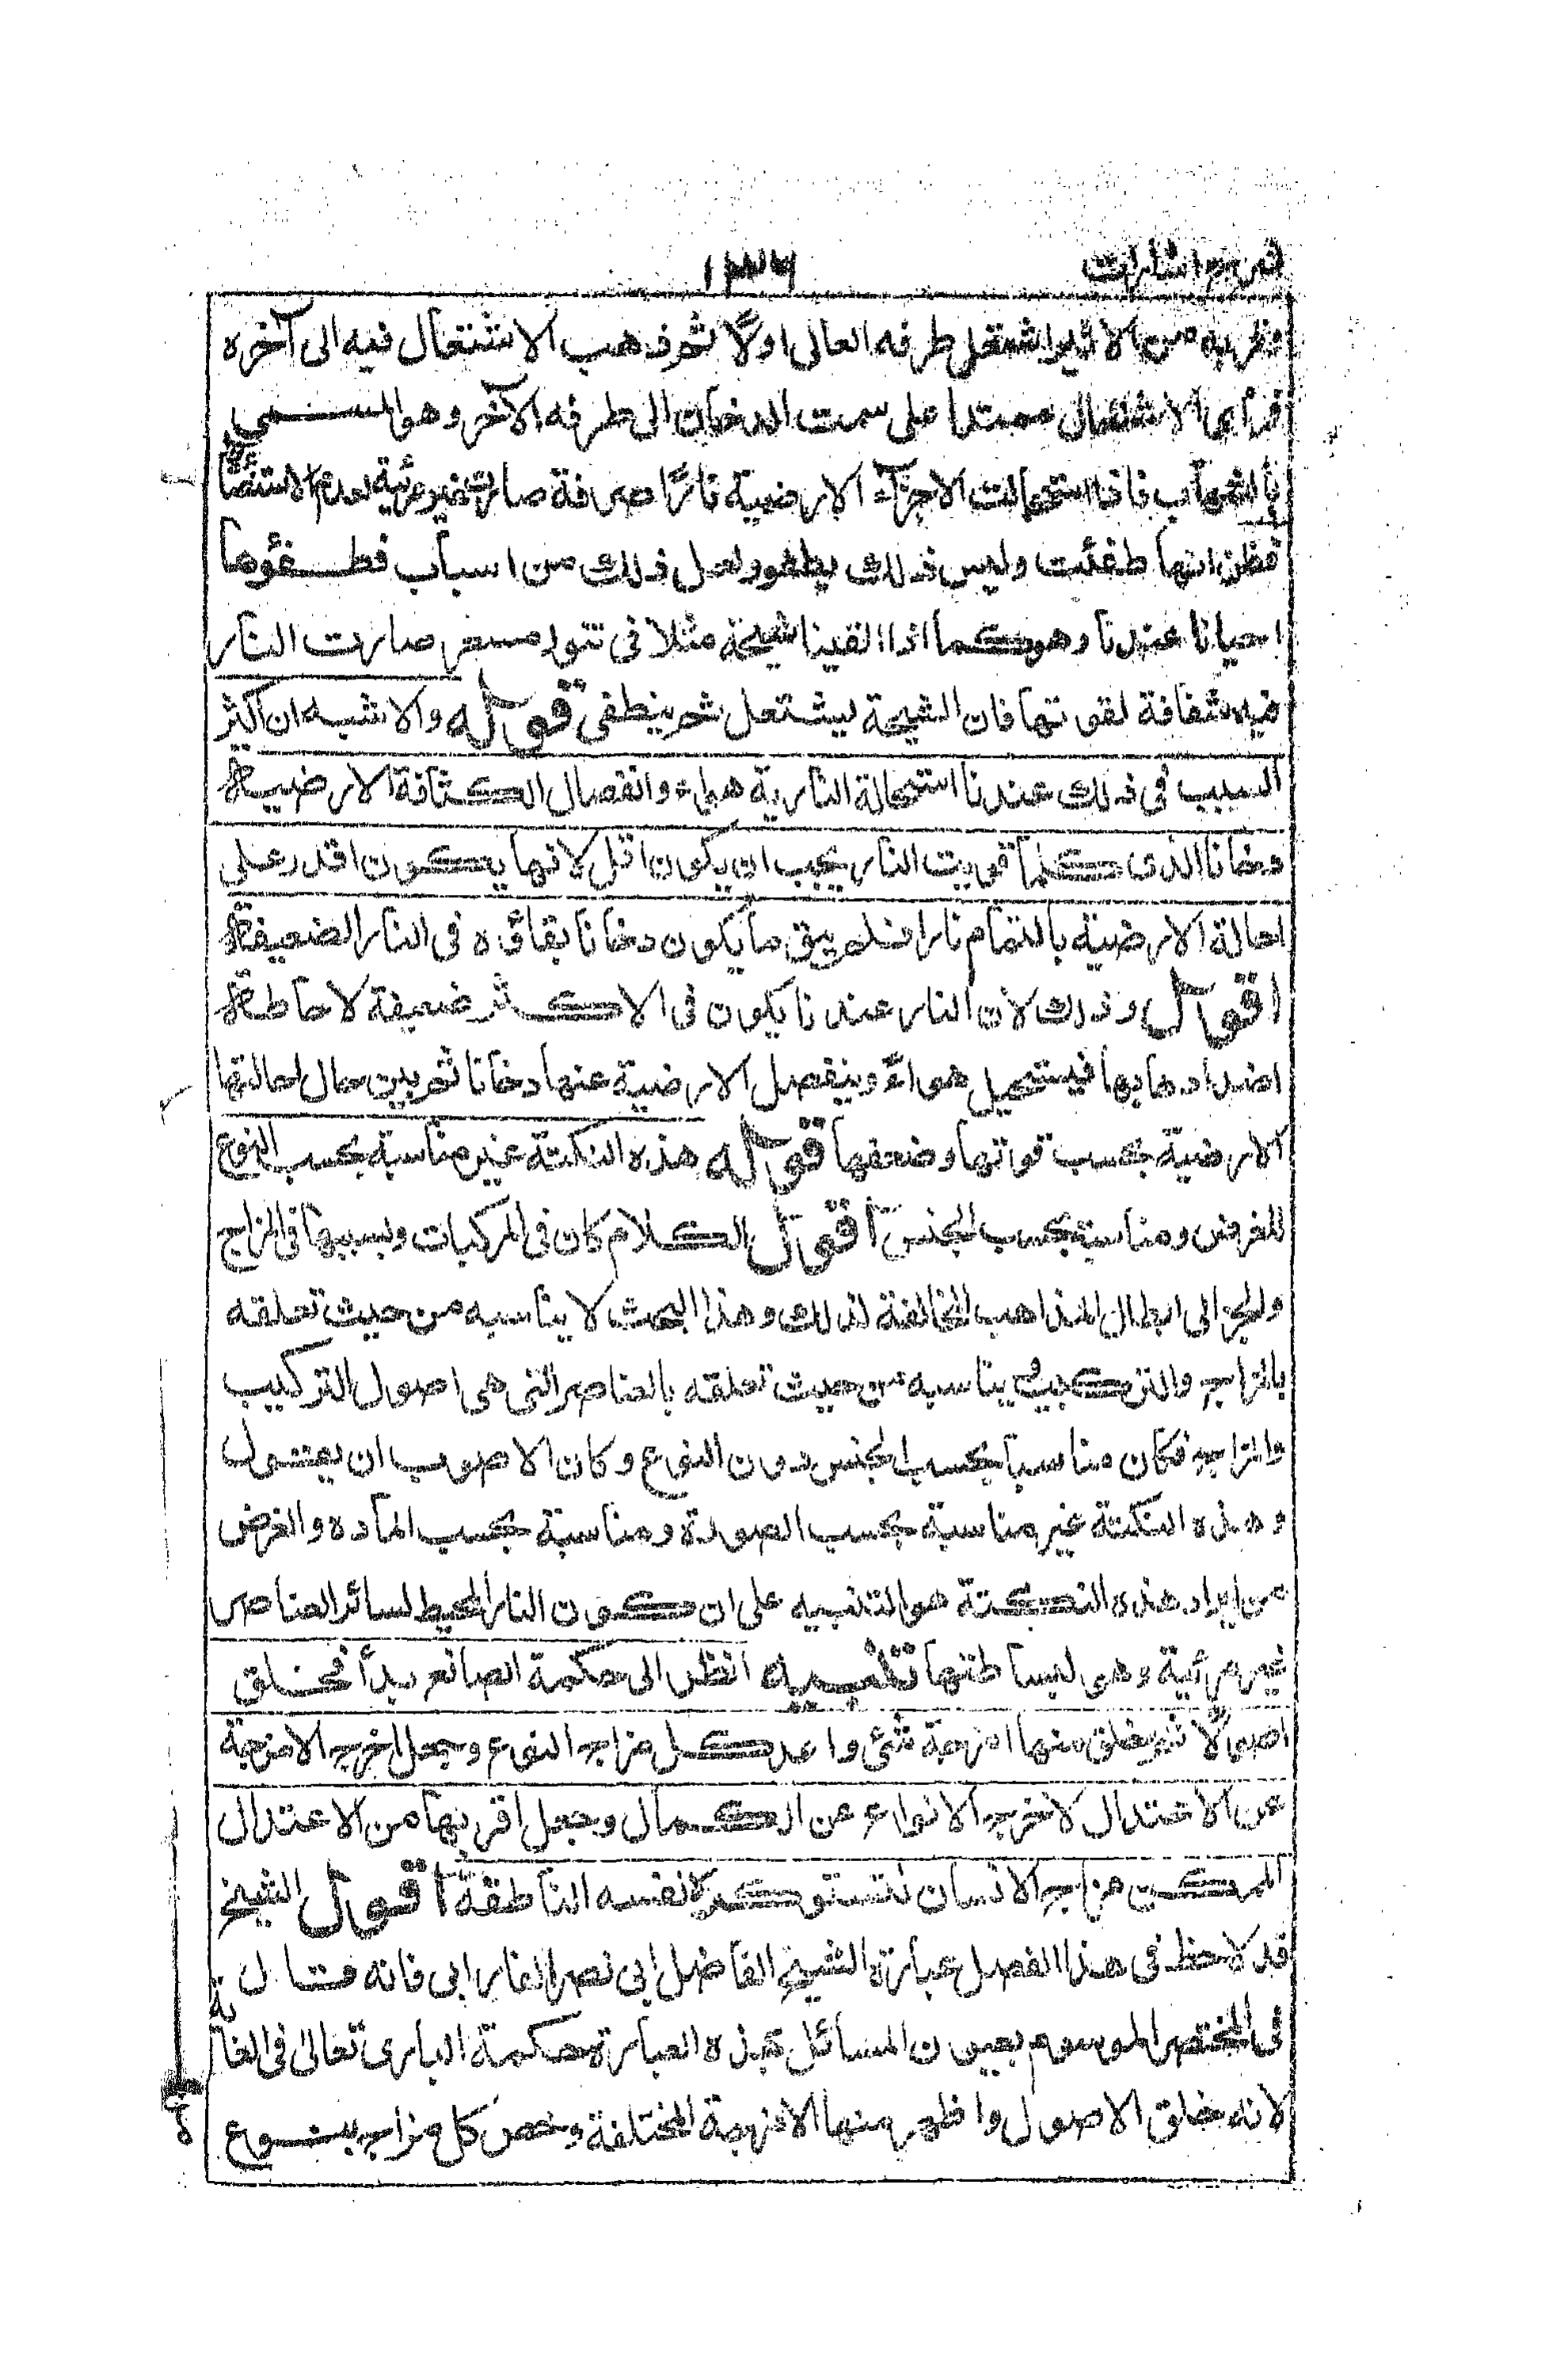 شرح اشارات ١٣٦
وقربه من الاثير اشتعل طرفه العالى اولا ثم ذهب الاشتعال فيه الى آخره
فرأى الاشتعال ممتدا على سمت الدخان الى طرفه الآخر وهو المسمى
بالشهاب فاذا استحالت الاجزآء الارضية نارًا صرفة صارت غير مرئية لعدم الاستضاءة
فظن انها طفئت وليس ذلك بطفو ولعل ذلك من اسباب طفوها
احيانا عندنا وهو كما اذا القينا شيحة مثلا فى تنور مسعر صارت النار
فيه شفافة لقوتها فان الشيحة ليشتعل ثم ينطفى قوله والاشبه ان اكثر
السبب فى ذلك عندنا استحالة النارية هواء وانفصال الكثافة الارضية
دخانا الذى كلما قويت النار يجب ان يكون اقل لانها يكون اقدر على
احالة الارضية بالتمام نارا فلم يبق ما يكون دخانا بقاؤه فى النار الضعيفة
اقول وذلك لان النار عندنا يكون فى الاكثر ضعيفة لاحاطة
اضدادها بها فيستحيل هواءً وينفصل الارضية عنها دخانا ثم بين حال احالتها
الارضية بحسب قوتها وضعفها قوله هذه النكتة غير مناسبة بحسب النوع
للغرض ومناسبة بحسب الجنس اقول الكلام كان فى المركبات وبسببها فى المزاج
ولهجر الى ابطال المذاهب المخالفة لذلك وهذا البحث لا يناسبه من حيث تعلقه
بالمزاج والتركيب ويناسبه من حيث تعلقه بالعناصر التى هى اصول التركيب
والمزاج فكان مناسبا بحسب الجنس دون النوع وكان الاصوب ان يقول
وهذه النكتة غير مناسبة بحسب الصورة ومناسبة بحسب المادة والغرض
من ايراد هذه النكتة هو التنبيه على ان كون النار المحيط لسائر العناصر
غير مرئية وهى لبساطتها تنبيه انظر الى حكمة الصانع بدأ فخلق
اصولا ثم خلق منها امزجة شئى واعد كل مزاج النوع وجعل اخرج الامزجة
عن الاعتدال لاخرج الانواع عن الكمال وجعل اقربها من الاعتدال
الممكن مزاج الانسان لتستوكره نفسه الناطقة اقول الشيخ
قد لاحظ فى هذا الفصل عبارة الشيخ الفاضل ابى نصر الفارابى فانه قال
فى المختصر الموسوم بعيون المسائل بهذه العبارة حكمة البارى تعالى فى الغاية
لانه خلق الاصول واظهر منها الامزجة المختلفة وخص كل مزاج بنوع